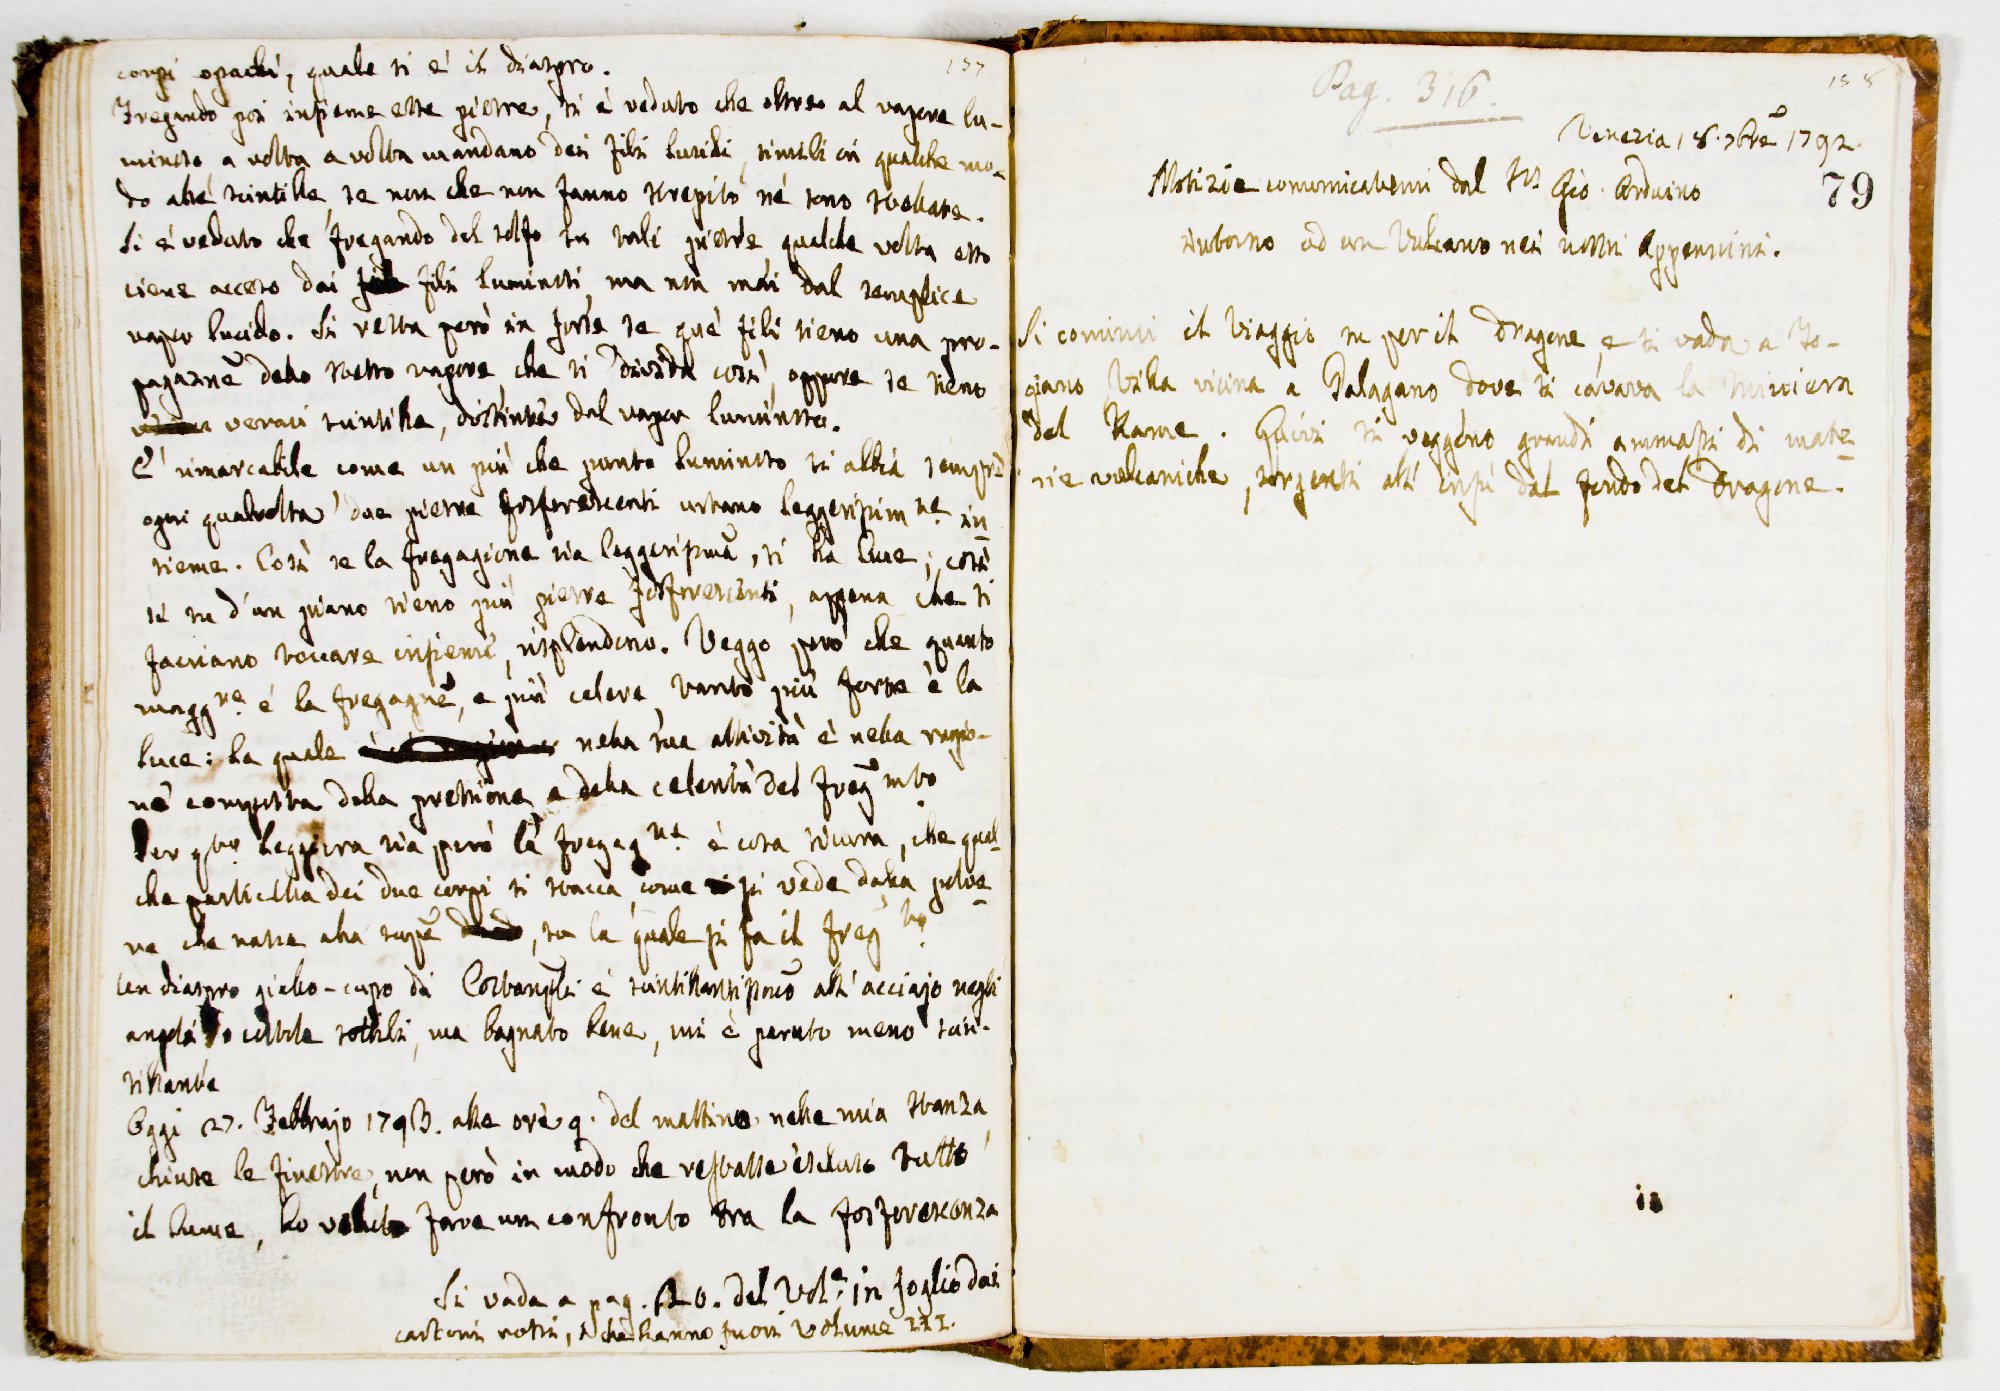 157
corpi opachi, quale si è il diaspro.
Fregando poi insieme esse pietre, si è veduto che oltre al vapore lu-
minoso a volta a volta mandano dei fili lucidi, simili in qualche mo-
do alle scintille se non che non fanno strepito né sono staccate.
Si è veduto che fregando del solfo su tali pietre qualche volta esso
viene acceso dai fili luminosi, ma non mai dal semplice
vapor lucido. Si resta però in forse se que' fili sieno una pro-
pagazne dello stesso vapore, che si divida così, oppure se sieno
veraci scintille, distinte dal vapor luminoso.
E' rimarcabile come un più che punto luminoso si abbia sempre
ogni qualvolta due pietre fosforescenti urtano leggerissimte in-
sieme. Così se la fregagione sia leggerissima, si ha luce; così
se su d'un piano sieno più pietre fosforescenti, appena che si
facciano toccare insieme, risplendono. Veggo però che quanto
maggre è la fregagne, e più celere, tanto più forte è la
luce: la quale nella sua attività è nella ragio-
ne composta della pressione e della celerità del fregmto
Per qto leggiera sia però la fregagne è cosa sicura, che qual-
che particella dei due corpi si stacca, come si vede dalla polve-
re che nasce alla supe, su la quale si fa il fregto
Un diaspro giallo-cupo di è scintillantissimo all' acciajo negli
angoli o coste sottili, ma bagnato bene, mi è paruto meno scin-
tillante
Oggi 27. Febbrajo 1793. alle ore 9. del mattino nelle mia stanza,
chiuse le finestre, non però in modo che restasse escluso tutto
il lume, ho voluto fare un confronto tra la fosforescenza
Si vada a pag. 20. del Vole. in foglio dai
cartoni rossi, e che hanno fuori Volume III.
158
Pag. 316.
Venezia 18. 7bre 1792.
79
Notizie comunicatemi dal Sr. Gio. Arduino
intorno ad un Vulcano nei nostri Appennini.
Si cominci il viaggio su per il Dragone, e si vada a To-
giano Villa vicina a Palagano dove si cavava la miniera
del Rame. Quivi si veggono grandi ammassi di mate-
rie vulcaniche, sorgenti all' insù dal fondo del Dragone.